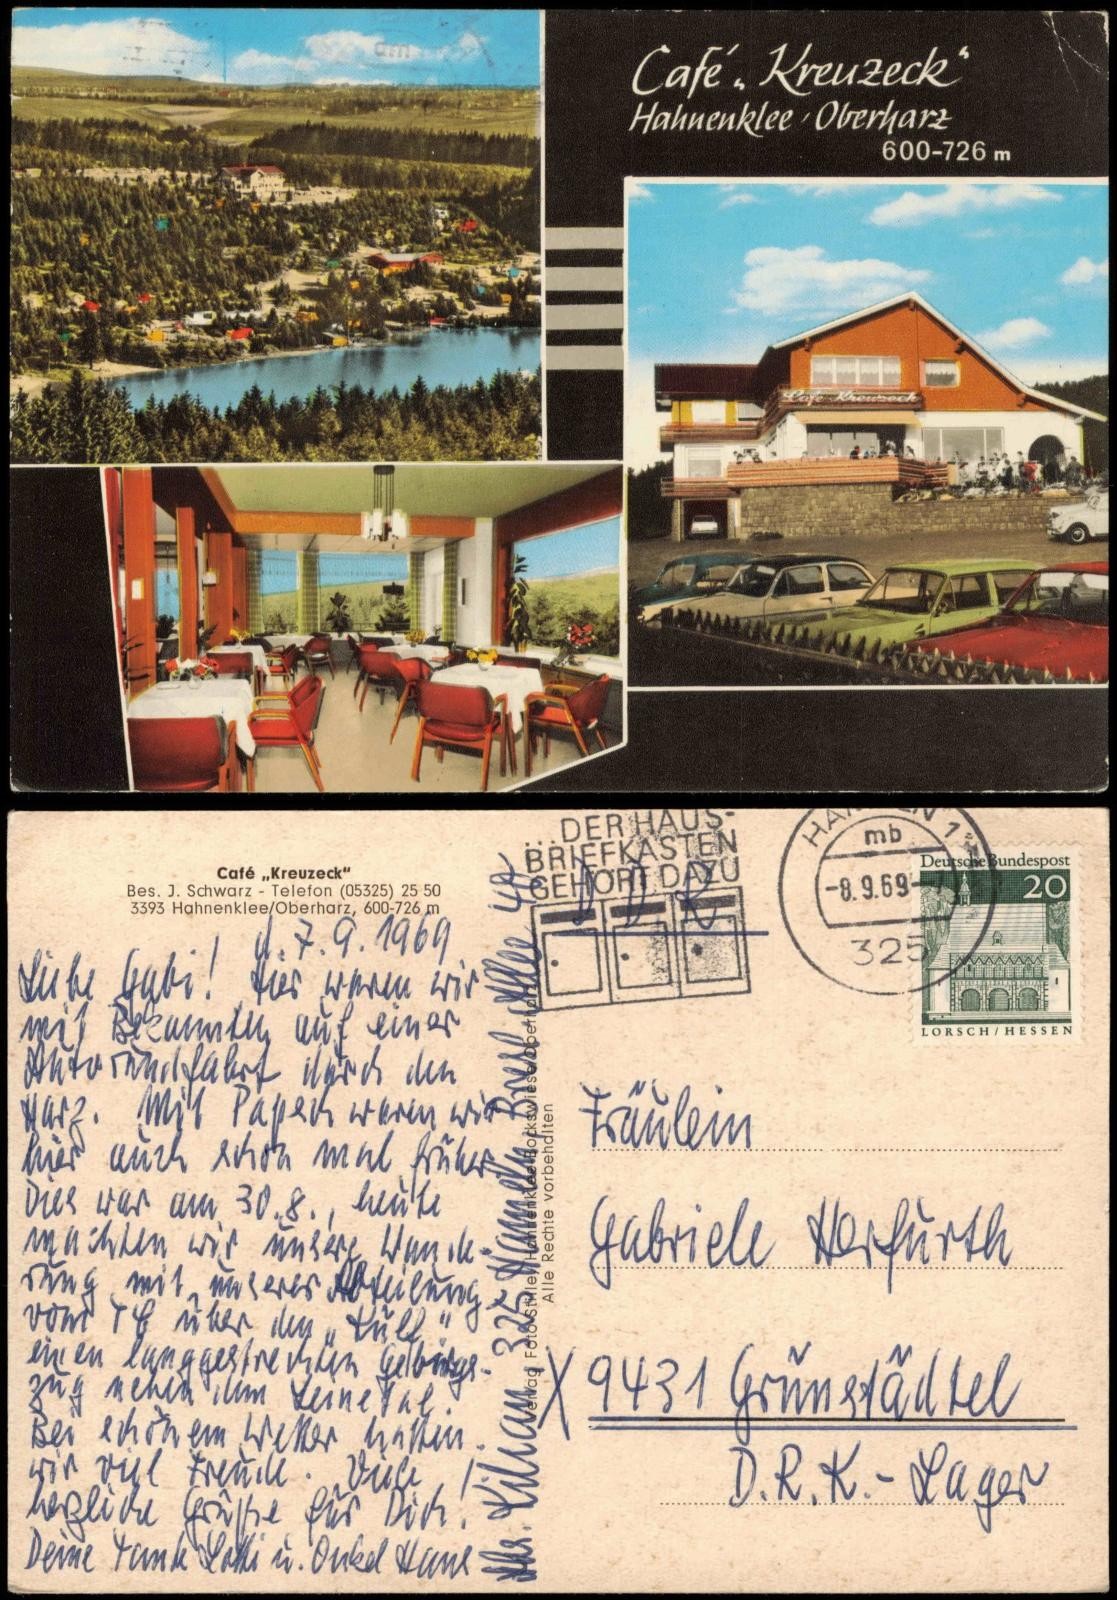 Café „Kreuzeck“
Hahnenklee · Oberharz
600-726 m
Café Kreuzeck
Café „Kreuzeck“
Bes. J. Schwarz - Telefon (05325) 25 50
3393 Hahnenklee/Oberharz, 600-726 m
d. 7.9.1969
Liebe Gabi! Hier waren wir
mit Bekannten auf einer
Autorundfahrt durch den
Harz. Mit Papa waren wir
hier auch schon mal früher
Dies war am 30.8., heute
machten wir unsere Wande-
rung mit unserer Abteilung
vom über den „
einen langgestreckten Gebirgs-
zug neben dem Leinetal.
Bei schönem Wetter hatten
wir viel Freude. Viele
herzliche Grüße für Dich!
Deine Tante Lotti u. Onkel Hans
Abs. Kilian, 325 Hameln,
Verlag Foto Hahnenklee-Bockswiese/Oberharz
Alle Rechte vorbehalten
...DER HAUS-
BRIEFKASTEN
GEHÖRT DAZU
DDR
HAMELN 1
mb
-8.9.69-
325
Deutsche Bundespost
20
LORSCH/HESSEN
Fräulein
Gabriele Herfurth
X 9431 Grünstädtel
D.R.K.-Lager